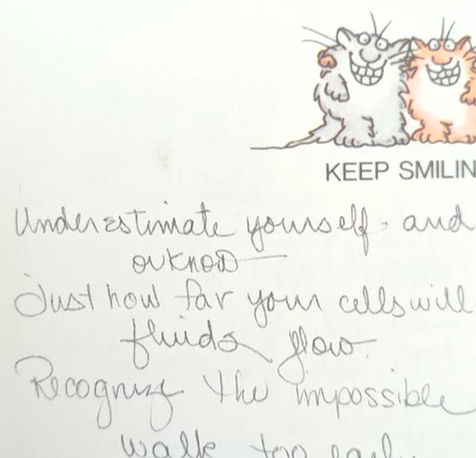 KEEP SMILIN
Underestimate yourself and
Just how far your cells will
fluids flow.
Recognize the impossible
walk too early